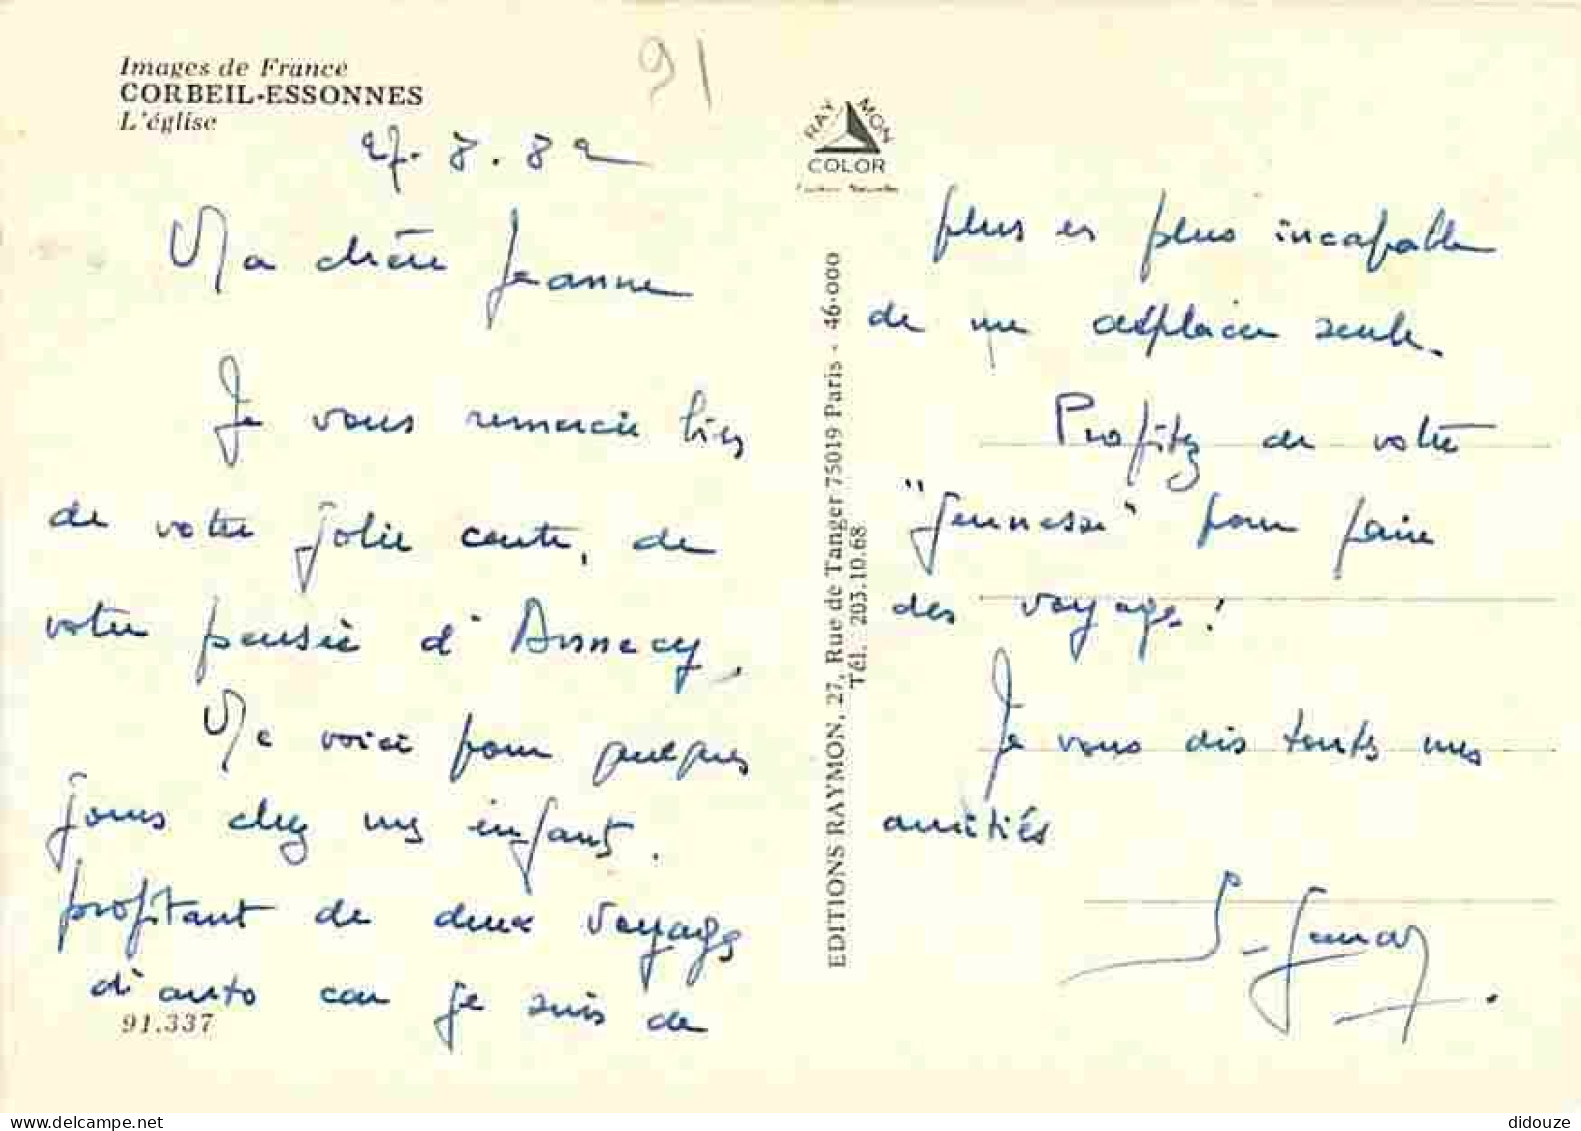 Images de France
CORBEIL-ESSONNES
L'église
91
27.8.82
Ma chère Jeanne
Je vous remercie bien
de votre jolie carte, de
votre pensée d'Annecy.
Me voici pour quelques
jours chez mes enfants.
profitant de deux voyages
d'auto car je suis de
91.337
RAYMON
COLOR
EDITIONS RAYMON, 27, Rue de Tanger 75019 Paris - 46.000
Tél. 203.10.68
plus en plus incapable
de me déplacer seule.
Profitez de votre
"jeunesse" pour faire
des voyages!
Je vous dis toutes mes
amitiés
delcampe.net
didouze